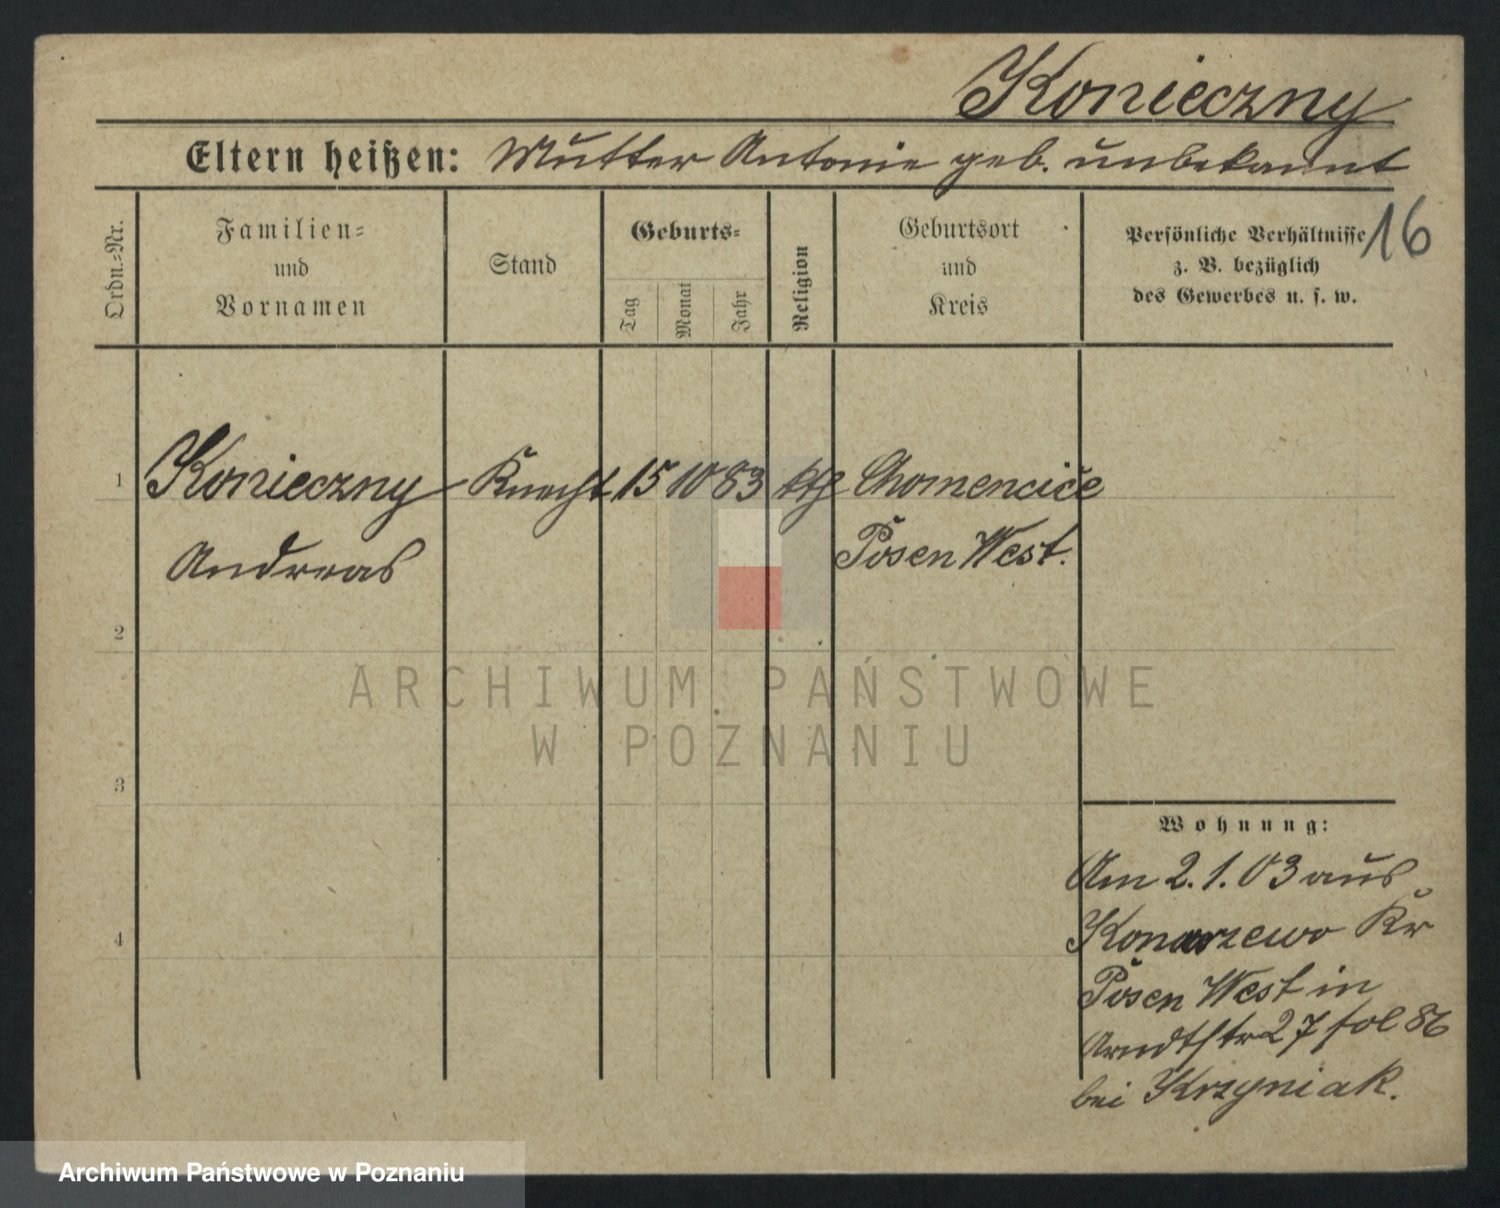 Konieczny
Eltern heißen: Mutter Antonie geb. unbekannt
16
Ordn.=Nr.
Familien=
und
Vornamen
Stand
Geburts=
Tag
Monat
Jahr
Religion
Geburtsort
und
Kreis
Persönliche Verhältnisse
z. B. bezüglich
des Gewerbes u. s. w.
1 Konieczny Knecht 15 10 83 kth Chomencice
Andreas Posen West.
2
3
4
Wohnung:
Am 2.1.03 aus
Konarzewo Kr
Posen West in
Arndtstr 27 fol 86
bei Krzyniak.
ARCHIWUM PAŃSTWOWE
W POZNANIU
Archiwum Państwowe w Poznaniu